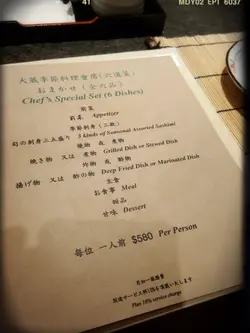 41 MDY02 EPT 6037
大阪季節料理會席(六道菜)
おまかせ (全六品)
Chef's Special Set (6 Dishes)
前菜
前菜 Appetizer
季節刺身(三款)
旬の刺身三点盛り 3 kinds of Seasonal Assorted Sashimi
燒物 或 煮物
焼き物 又は 煮物 Grilled Dish or Stewed Dish
炸物 或 酢物
揚げ物 又は 酢の物 Deep Fried Dish or Marinated Dish
主食
お食事 Meal
甜品
甘味 Dessert
每位 一人前 $580 Per Person
另加一服務費
別途サービス料10%を頂戴いたします
Plus 10% service charge